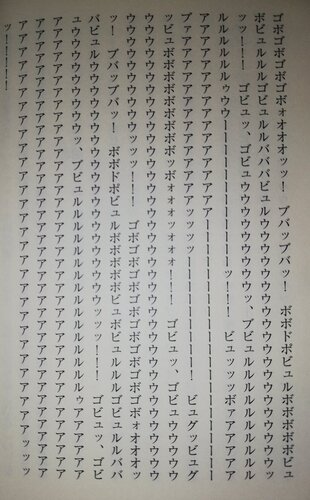 ゴボゴボゴボォオオオッッ！　ブバッブバッ！　ボボドボビュルボボボボビュ
ボビュルルルルゴビュルルルバババビュルウウウウウウウウウウウウウウウウウ
ッッ！！　ゴビュッ、ゴビュウウウウウウウウウウウウッ、ブビュルルルルルルル
ルルルルルゥウウーーーーーーーーーーーーーーーーッ！！！　ビュッッッボァアアアア
アアアアアアアアアアアアアアアーーーーーーーーーーーーーーーー
ブァアアアアアアアアアアアアアッッッッーーーーーーーーー！　ビュグッビュグ
ッビュボボボボボボボボボボッボォォォッォォ！！！！　ゴビュッ、ゴビュウウウウ
ウウウウウウウウウウウウウウウウウウウウウウウウウウウウウウウウウウウウ
ウウウウウウウウウウウウウッッッ！！！！　ゴボゴボゴボゴボゴボォオオオッ
ッ！　ブバッブバッ！　ボボドボビュルボボボボビュゴボビュルルルルゴビュルルルババ
バビュルウウウウウウウウウウウウウウウウウウウウッッッ！！！！　ゴビュッ、ゴビ
ュウウウウウウウウウッ、ブビュルルルルルルルルルルルルルルゥアアアアアア
アアアアアアアアアアアアアアアアアアアアアアアアアアアアアアアアアアアア
アアアアアアアアアアアアアアアアアアアアアアアアアアアアアアアアアッッッ
ッ！！！！！